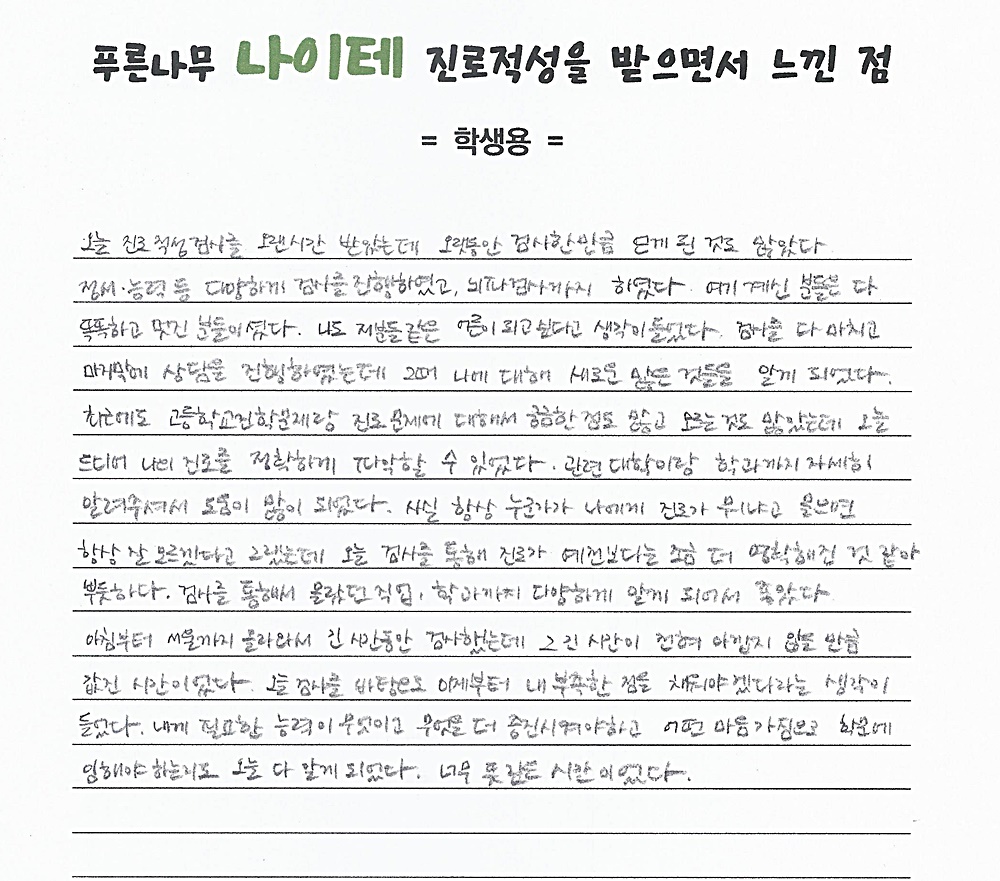 푸른나무 나이테 진로적성을 받으면서 느낀 점
= 학생용 =
오늘 진로적성검사를 오랜시간 받았는데 오랫동안 검사한만큼 얻게 된 것도 많았다.
정서·능력 등 다양하게 검사를 진행하였고, 뇌파검사까지 하였다. 여기 계신 분들은 다
똑똑하고 멋진 분들이셨다. 나도 저분들같은 어른이 되고싶다고 생각이들었다. 검사를 다 마치고
마지막에 상담을 진행하였는데 그때 나에 대해 새로운 많은 것들을 알게 되었다.
최근에도 고등학교진학문제랑 진로문제에 대해서 궁금한점도 많고 모르는것도 많았는데 오늘
드디어 나의 진로를 정확하게 파악할 수 있었다. 관련대학이랑 학과까지 자세히
알려주셔서 도움이 많이 되었다. 사실 항상 누군가가 나에게 진로가 뭐냐고 물으면
항상 잘모르겠다고 그랬는데 오늘 검사를 통해 진로가 예전보다는 조금 더 명확해진 것 같아
뿌듯하다. 검사를 통해서 몰랐던 직업, 학과까지 다양하게 알게 되어서 좋았다.
아침부터 서울까지 올라와서 긴 시간동안 검사했는데 그 긴 시간이 전혀 아깝지 않을 만큼
값진 시간이었다. 오늘 검사를 바탕으로 이제부터 내 부족한 점을 채워야겠다라는 생각이
들었다. 내게 필요한 능력이 무엇이고 무엇을 더 증진시켜야하고 어떤 마음가짐으로 학문에
임해야 하는지도 오늘 다 알게 되었다. 너무 뜻깊은 시간이었다.